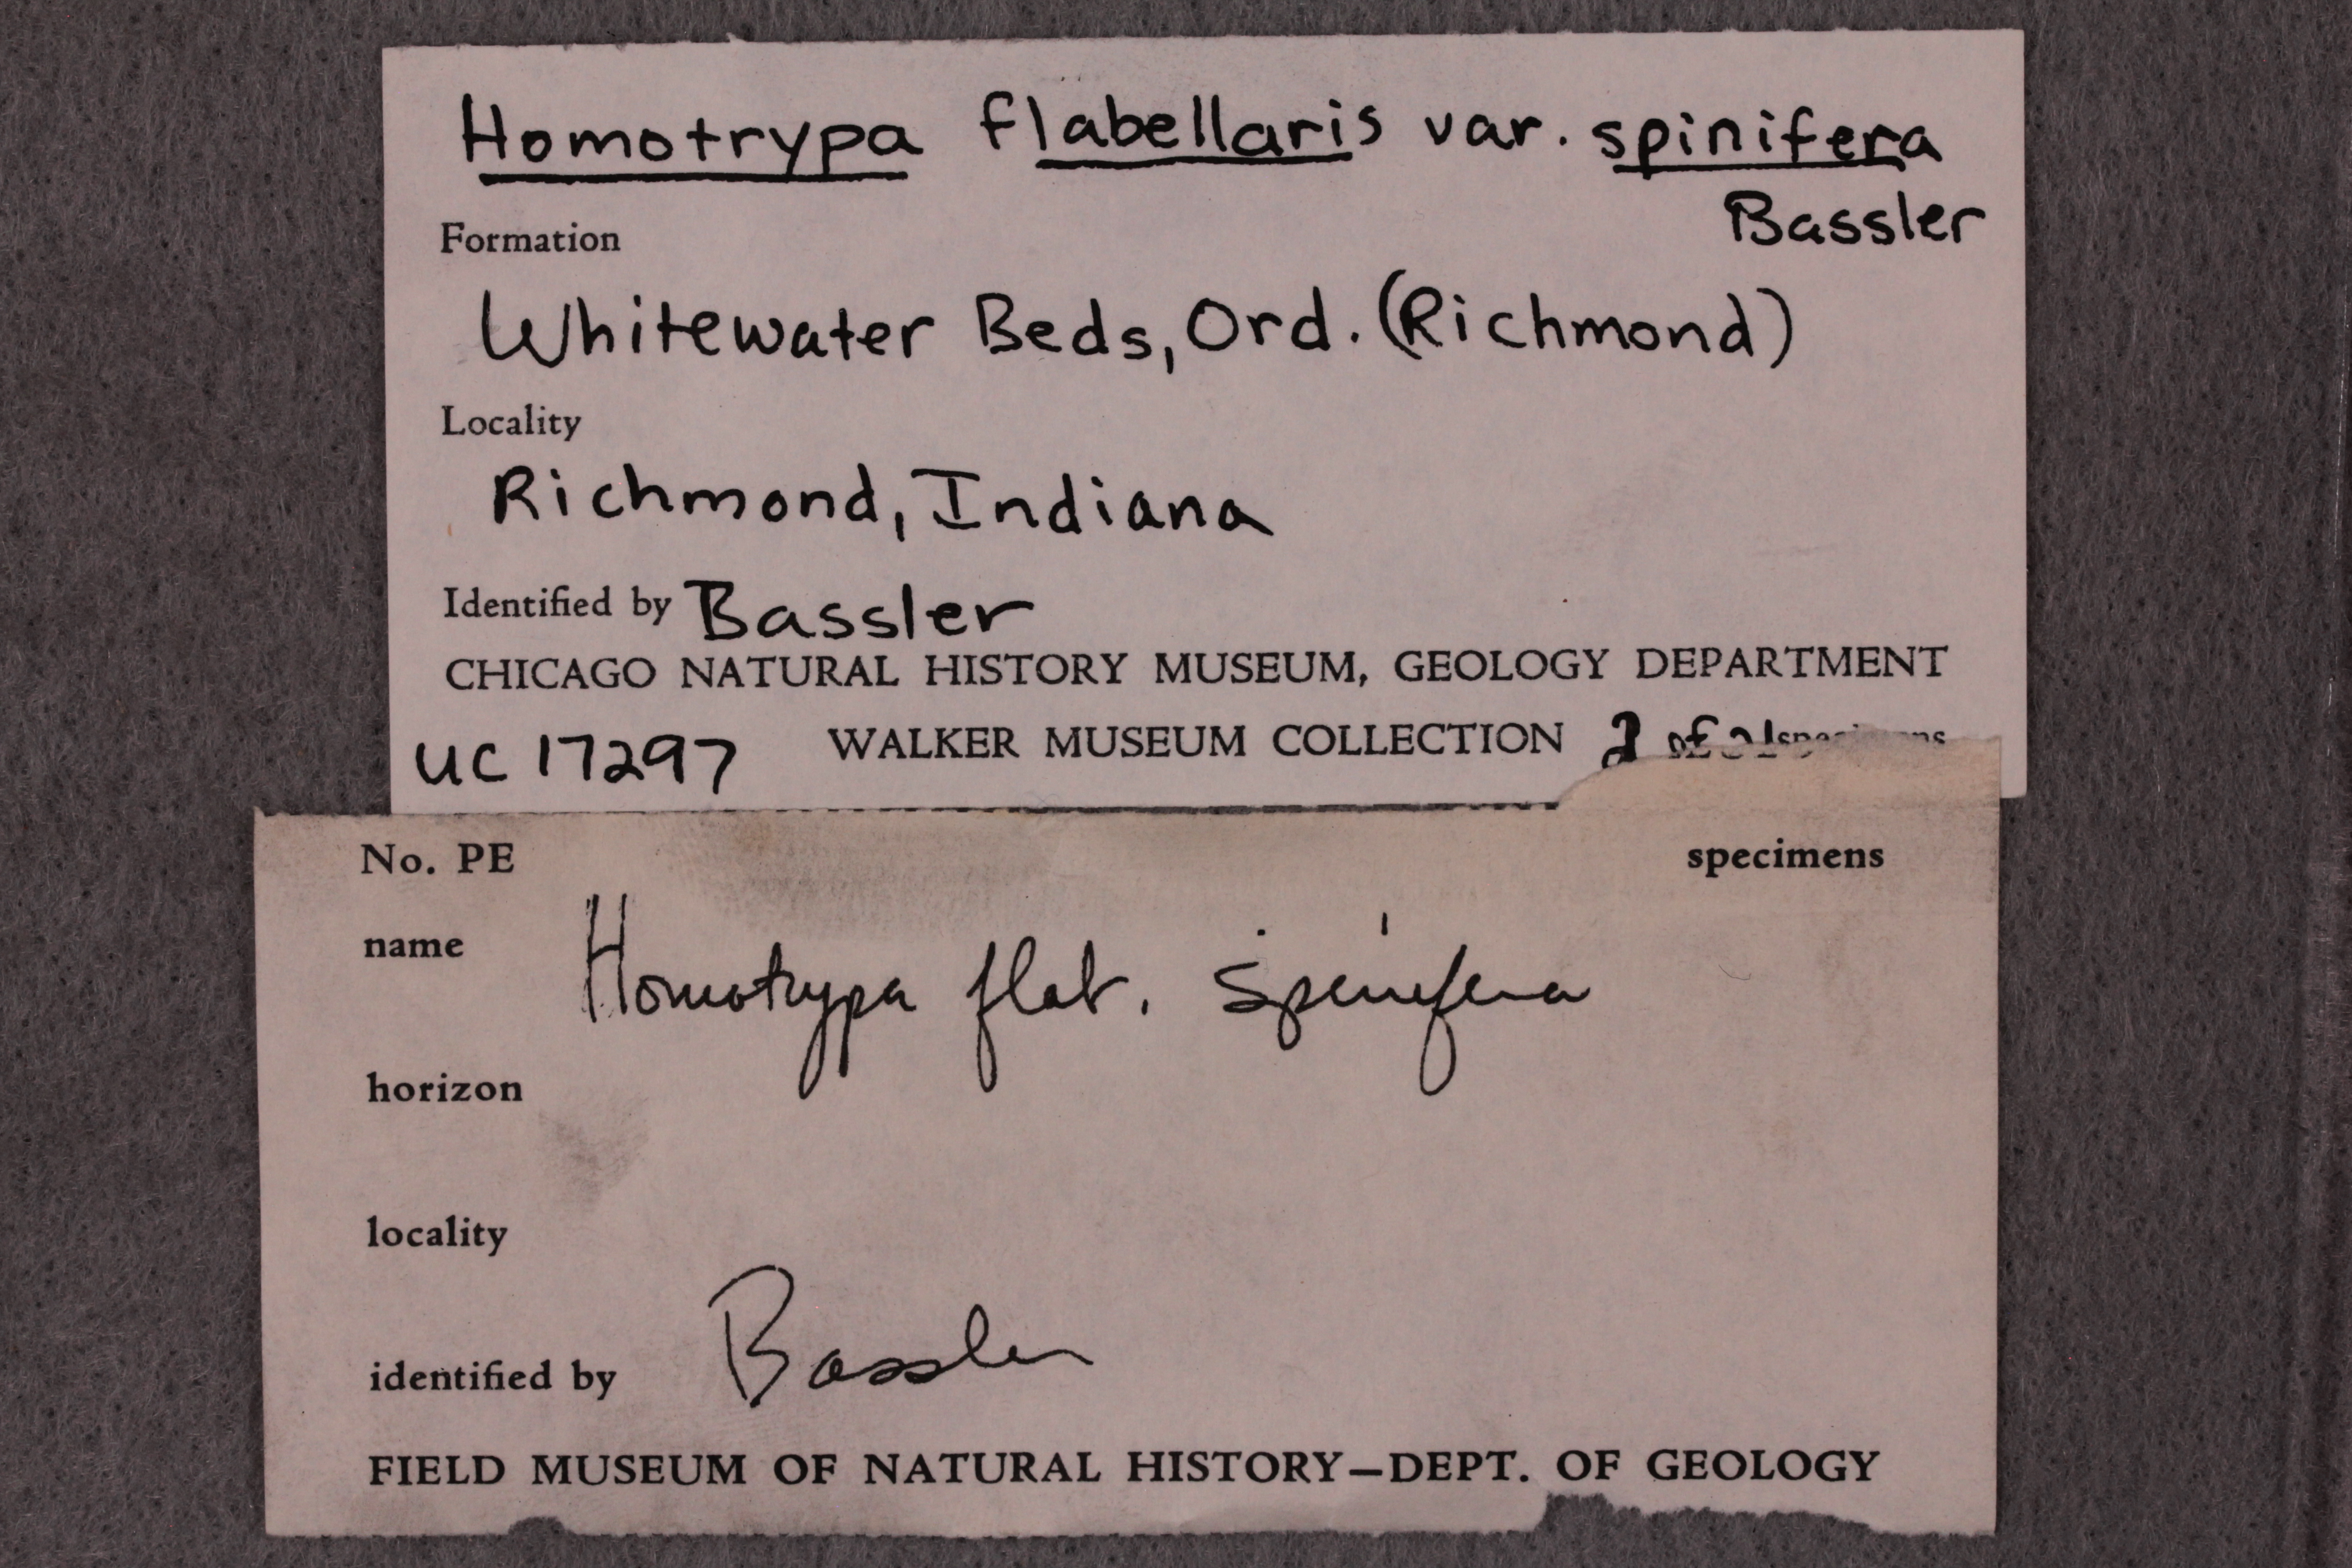 Homotrypa flabellaris var. spinifera
Bassler
Formation
Whitewater Beds, Ord. (Richmond)
Locality
Richmond, Indiana
Identified by Bassler
CHICAGO NATURAL HISTORY MUSEUM, GEOLOGY DEPARTMENT
UC 17297 WALKER MUSEUM COLLECTION 2 of specimens
No. PE specimens
name Homotrypa flab. spinifera
horizon
locality
identified by Bassler
FIELD MUSEUM OF NATURAL HISTORY—DEPT. OF GEOLOGY